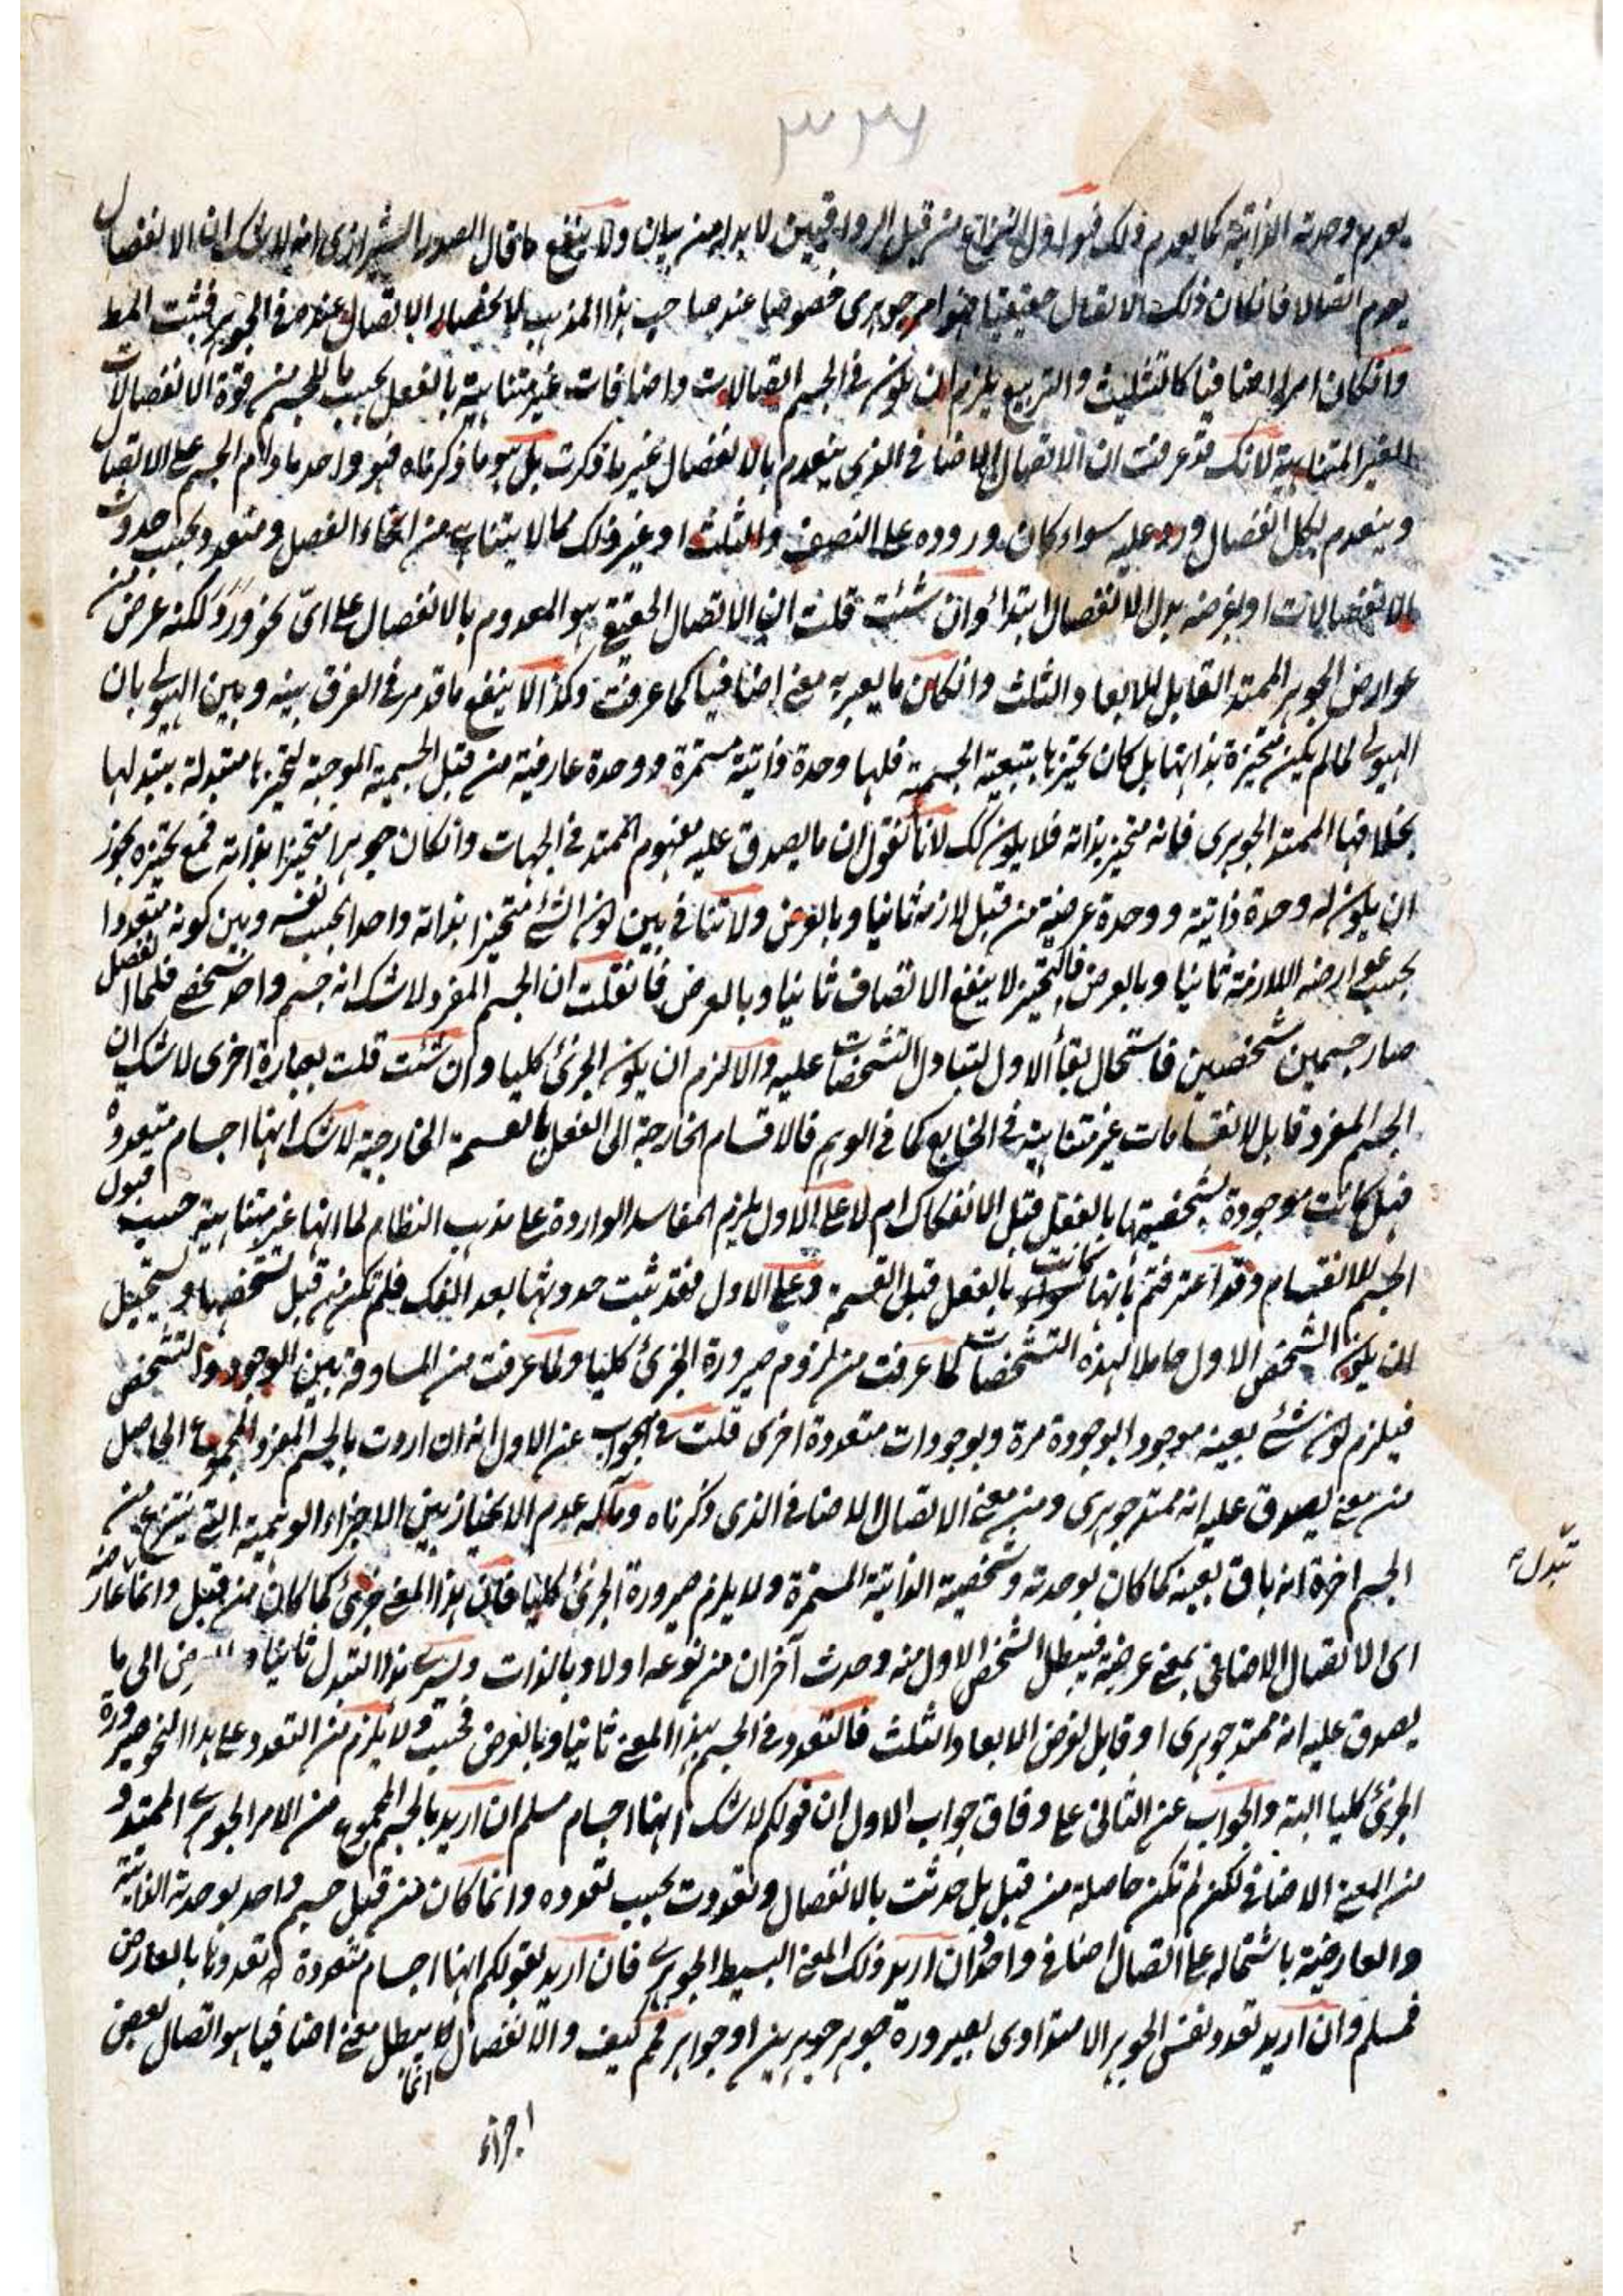 ٣٢٦
يعدم وحدته الذاتية كما يعدم ذلك فهو اول النزاع من قبل الرواقيين لا بد له من بيان ولا ينفع ما قال الصدر الشيرازى انه لا شك ان الانفصال
يعدم اتصالا فان كان ذلك الاتصال حقيقيا فهو امر جوهرى خصوصا عند صاحب هذا المذهب لانحصار الاتصال عنده فى الجوهر فثبت المط
وان كان امرا اضافيا كالتثليث والتربيع يلزم ان يكون فى الجسم اتصالات واضافات غير متناهية بالفعل بحسب ما للجسم من قوة الانفصالات
الغير المتناهية لانك قد عرفت ان الاتصال الاضافى الذى ينعدم بالانفصال غير ما ذكرت بل هو ما ذكرناه فهو واحد ما دام الجسم على الاتصال
وينعدم بكل انفصال ورد عليه سواء كان وروده على النصف والثلث او غير ذلك مما لا يتناهى من انحاء الفصل ومتعدد بحسب حدوث
الانفصالات او بفرضه بدل الانفصال ابتداء وان شئت قلت ان الاتصال الحقيقى هو المعدوم بالانفصال على اىّ نحو ورد لكنه عرض من
عوارض الجوهر الممتد القابل للابعاد الثلث وان كان ما يعبر به معنى اضافيا كما عرفت وكذا لا ينفع ما قد مر فى الفرق بينه وبين الهيولى بان
الهيولى لما لم يكن متحيزة بذاتها بل كان تحيزها بتبعية الجسمية فلها وحدة ذاتية مستمرة ووحدة عارضية من قبل الجسمية الموجبة لتحيزها متبدلة بتبدلها
بخلافها الممتد الجوهرى فانه متحيز بذاته فلا يكون كك لانا نقول ان ما يصدق عليه مفهوم الممتد فى الجهات وان كان جوهرا متحيزا بذاته فمع تحيزه يجوز
ان يكون له وحدة ذاتية ووحدة عرضية من قبل لازمه ثانيا وبالعرض ولا تنافى بين كون الشئ متحيزا بذاته واحدا بحسب نفسه وبين كونه متعددا
بحسب عوارضه اللازمة ثانيا وبالعرض فالتحيز لا ينفع الاتصاف ثانيا وبالعرض فان قلت ان الجسم المفرد لا شك انه جسم واحد شخصى فلما انفصل
صار جسمين شخصين فاستحال بقاء الاول لتبادل التشخصات عليه والا لزم ان يكون الجزئى كليا وان شئت قلت بعبارة اخرى لا شك ان
الجسم المفرد قابل لانقسامات غير متناهية فى الخارج كما فى الوهم فالاقسام الخارجة الى الفعل بالقسمة الخارجية لا شك انها اجسام متعددة
فهل كانت موجودة بشخصيتها بالفعل قبل الانفكاك ام لا على الاول يلزم المفاسد الواردة على مذهب النظام لما انها غير متناهية حسب قبول
الجسم للانقسام وقد اعترفتم بأنها كانت بالفعل قبل القسمة وعلى الاول فقد ثبت حدوثها بعد الفك فلم تكن من قبل تشخصها ويستحيل
ان يكون الشخص الاول حاملا لهذه التشخصات كما عرفت من لزوم صيرورة الجزئى كليا ولما عرفت من المساوقة بين الوجود والتشخص
فيلزم كون شئ بعينه موجودا بوجود مرة وبوجودات متعددة اخرى قلت فى الجواب عن الاول انه ان اردت بالجسم المفرد المجموع الحاصل
من معنى يصدق عليه انه ممتد جوهرى ومن معنى الاتصال الاضافى الذى ذكرناه ومآله عدم الانحياز بين الاجزاء الوهمية التى ينتزع من
الجسم اخترنا انه باق بعينه كما كان بوحدته وشخصيته الذاتية المستمرة ولا يلزم صيرورة الجزئى كليا فان هذا المعنى جزئى كما كان من قبل وانما عارضه
اى الاتصال الاضافى بمعنى عرضية فيبطل الشخص الاول منه وحدث آخران من نوعه اولا وبالذات وليسرى هذا التبدل ثانيا وبالعرض الى ما
يصدق عليه انه ممتد جوهرى او قابل لفرض الابعاد الثلث فالتعدد فى الجسم بهذا المعنى ثانيا وبالعرض فحسب ولا يلزم من التعدد على هذا النحو صيرورة
الجزئى كليا البتة والجواب عن الثانى على وفاق جواب الاول ان قولكم لا شك انها اجسام مسلم ان اريد بالجسم المجموع من الامر الجوهرى الممتد و
من المعنى الاضافى لكن لم تكن حاصلة من قبل بل حدثت بالانفصال وتعددت بحسب تعدده وانما كان من قبل جسم واحد بوحدته الذاتية
والعارضية باشتماله على اتصال اضافى واحد وان اريد ذلك المعنى البسيط الجوهرى فان اريد بقولكم انها اجسام متعددة تعددها بالعارض
فمسلم وان اريد تعدد نفس الجوهر الامتدادى بصيرورة جوهر جوهرين او جواهر فمم كيف والانفصال انما يبطل معنى اضافيا هو اتصال بعض
اجزاء
تبدل صح